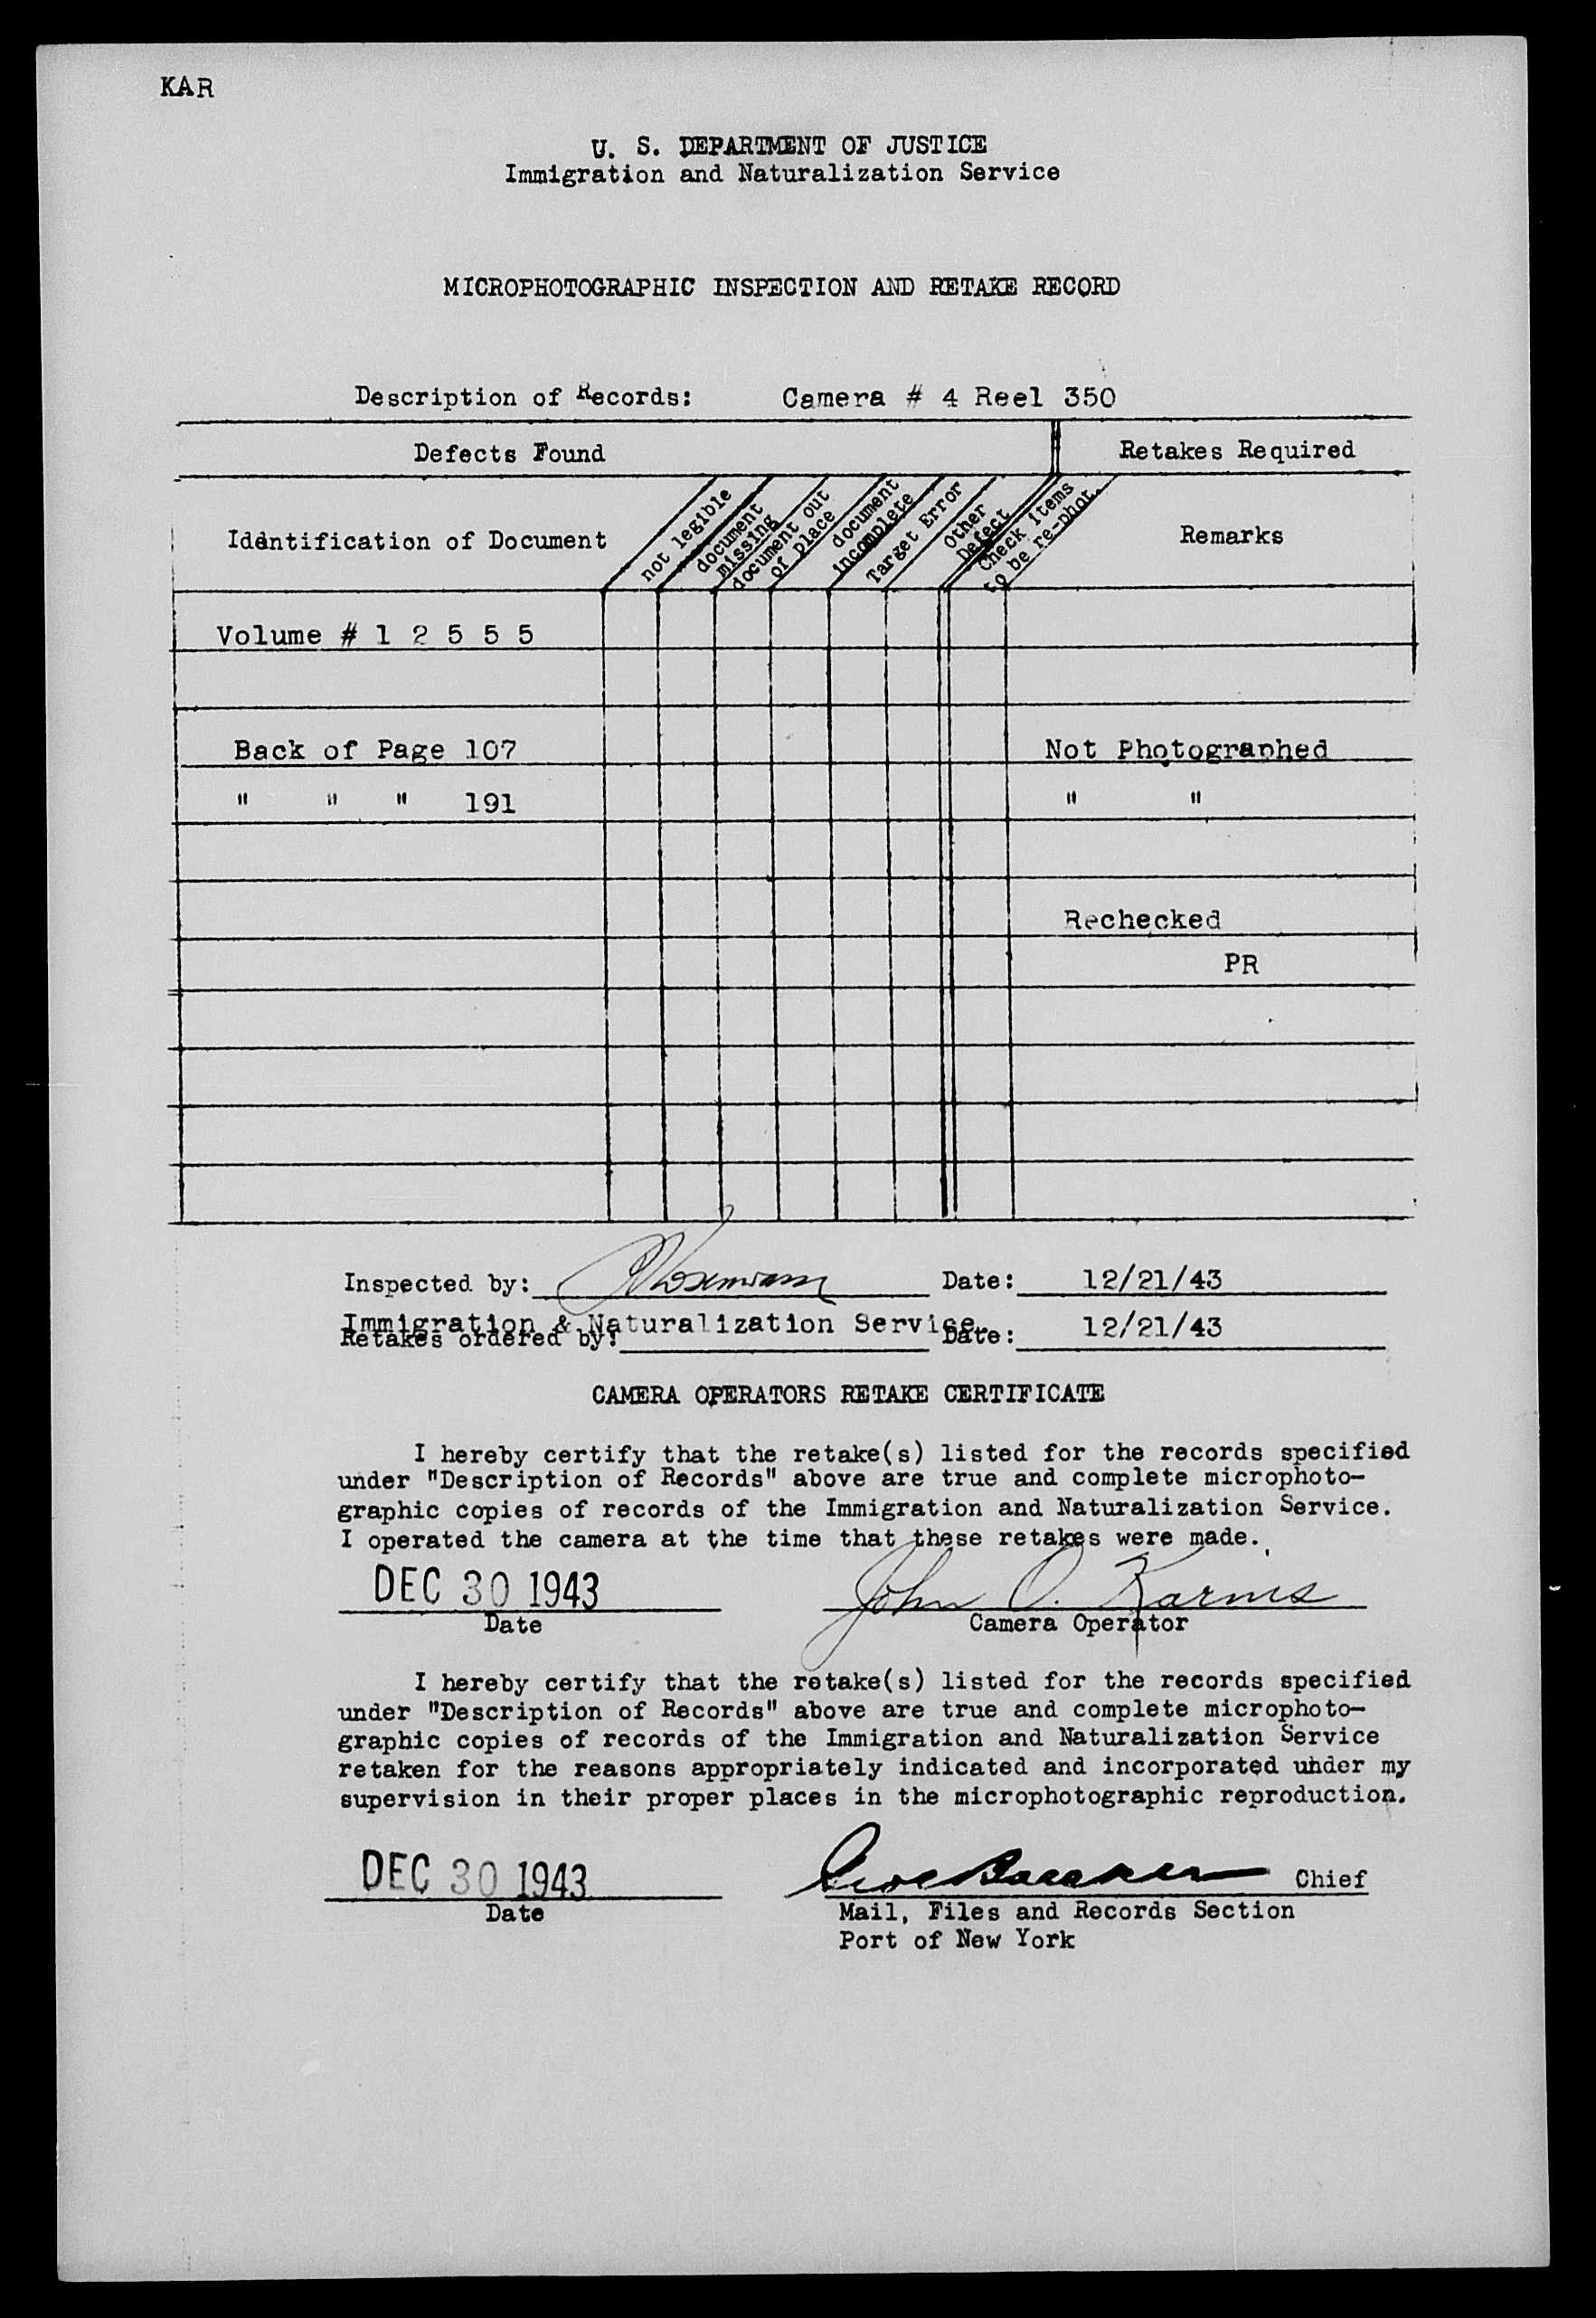 KAR
U. S. DEPARTMENT OF JUSTICE
Immigration and Naturalization Service
MICROPHOTOGRAPHIC INSPECTION AND RETAKE RECORD
Description of Records: Camera # 4 Reel 350
Defects Found Retakes Required
Idèntification of Document
not legible
document missing
document out of place
document incomplete
Target Error
Other Defect
Check items to be re-phot.
Remarks
Volume # 1 2 5 5 5
Back of Page 107 Not Photographed
" " " 191 " "
Rechecked
PR
Inspected by: Date: 12/21/43
Immigration & Naturalization Service
Retakes ordered by: Date: 12/21/43
CAMERA OPERATORS RETAKE CERTIFICATE
I hereby certify that the retake(s) listed for the records specified
under "Description of Records" above are true and complete microphoto-
graphic copies of records of the Immigration and Naturalization Service.
I operated the camera at the time that these retakes were made.
DEC 30 1943 John O. Karms
Date Camera Operator
I hereby certify that the retake(s) listed for the records specified
under "Description of Records" above are true and complete microphoto-
graphic copies of records of the Immigration and Naturalization Service
retaken for the reasons appropriately indicated and incorporated under my
supervision in their proper places in the microphotographic reproduction.
DEC 30 1943 Chief
Date Mail, Files and Records Section
Port of New York